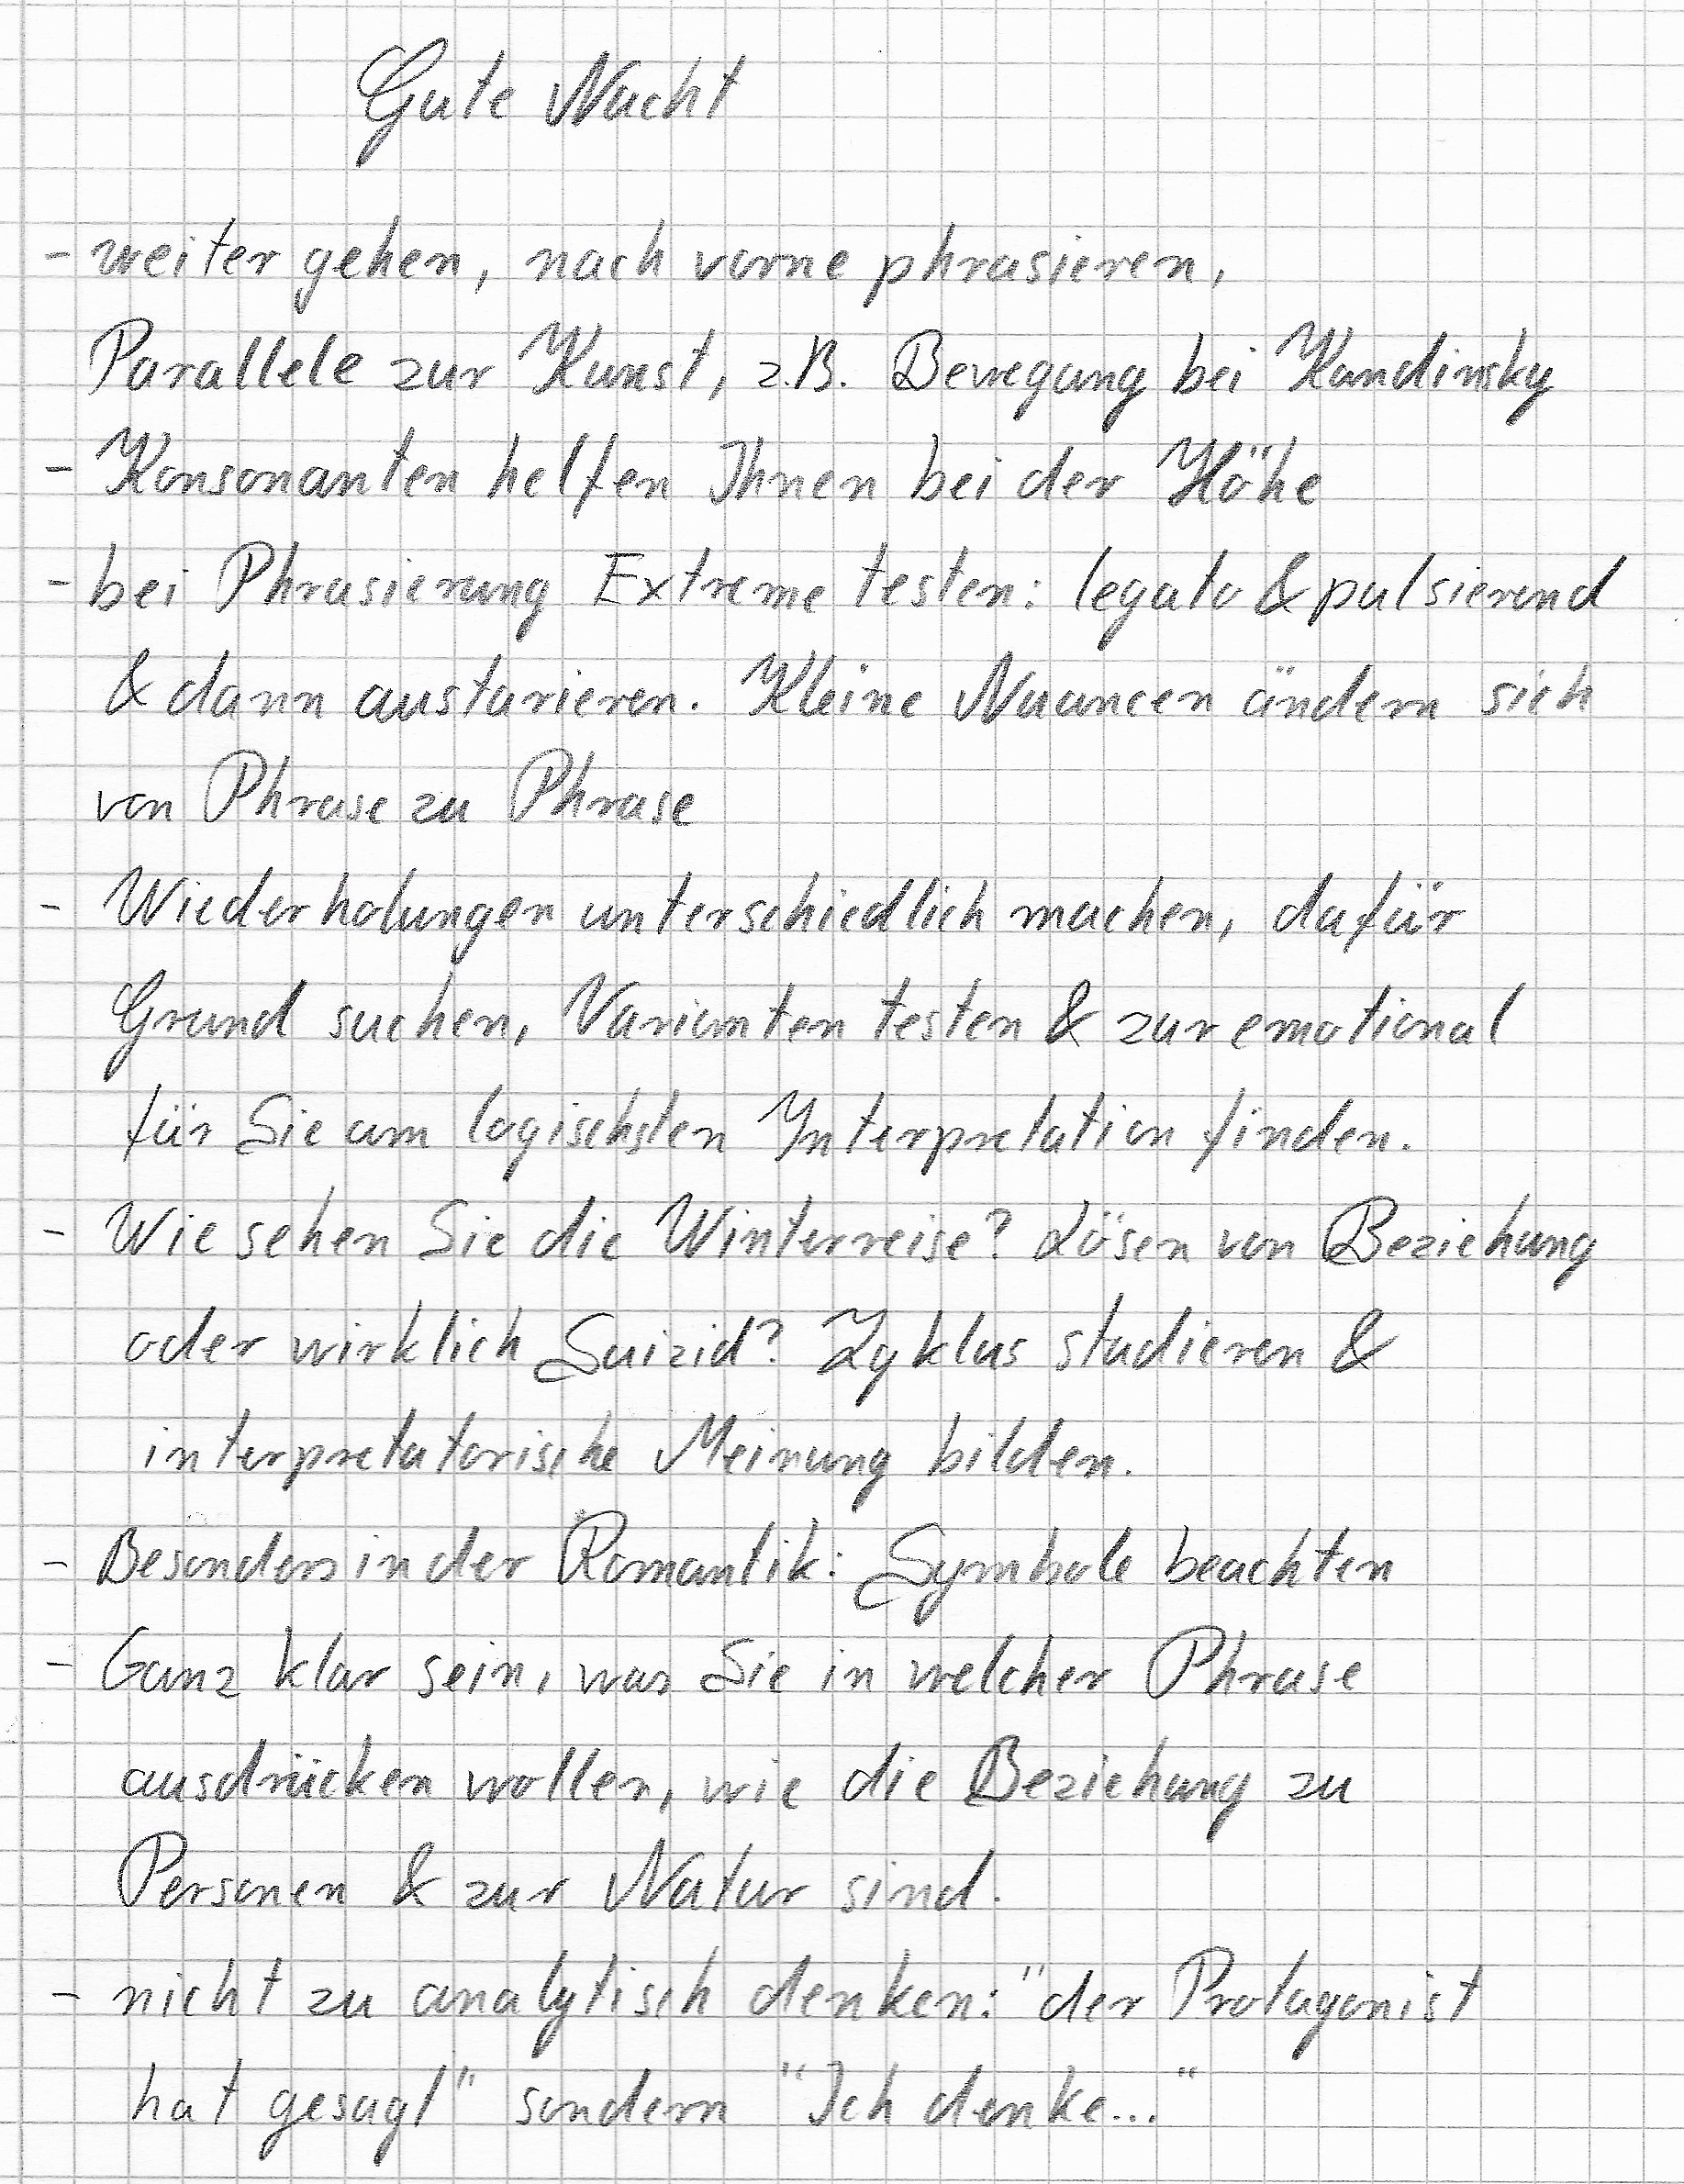 Gute Nacht
- weiter gehen, nach vorne phrasieren,
Parallele zur Kunst, z.B. Bewegung bei Kandinsky
- Konsonanten helfen Ihnen bei der Höhe
- bei Phrasierung Extreme testen: legato & pulsierend
& dann austarieren. Kleine Nuancen ändern sich
von Phrase zu Phrase
- Wiederholungen unterschiedlich machen, dafür
Grund suchen, Varianten testen & zur emotional
für Sie am logischsten Interpretation finden.
- Wie sehen Sie die Winterreise? Lösen von Beziehung
oder wirklich Suizid? Zyklus studieren &
interpretatorische Meinung bilden.
- Besonders in der Romantik: Symbole beachten
- Ganz klar sein, was Sie in welcher Phrase
ausdrücken wollen, wie die Beziehung zu
Personen & zur Natur sind.
- nicht zu analytisch denken: "der Protagonist
hat gesagt" sondern "Ich denke..."